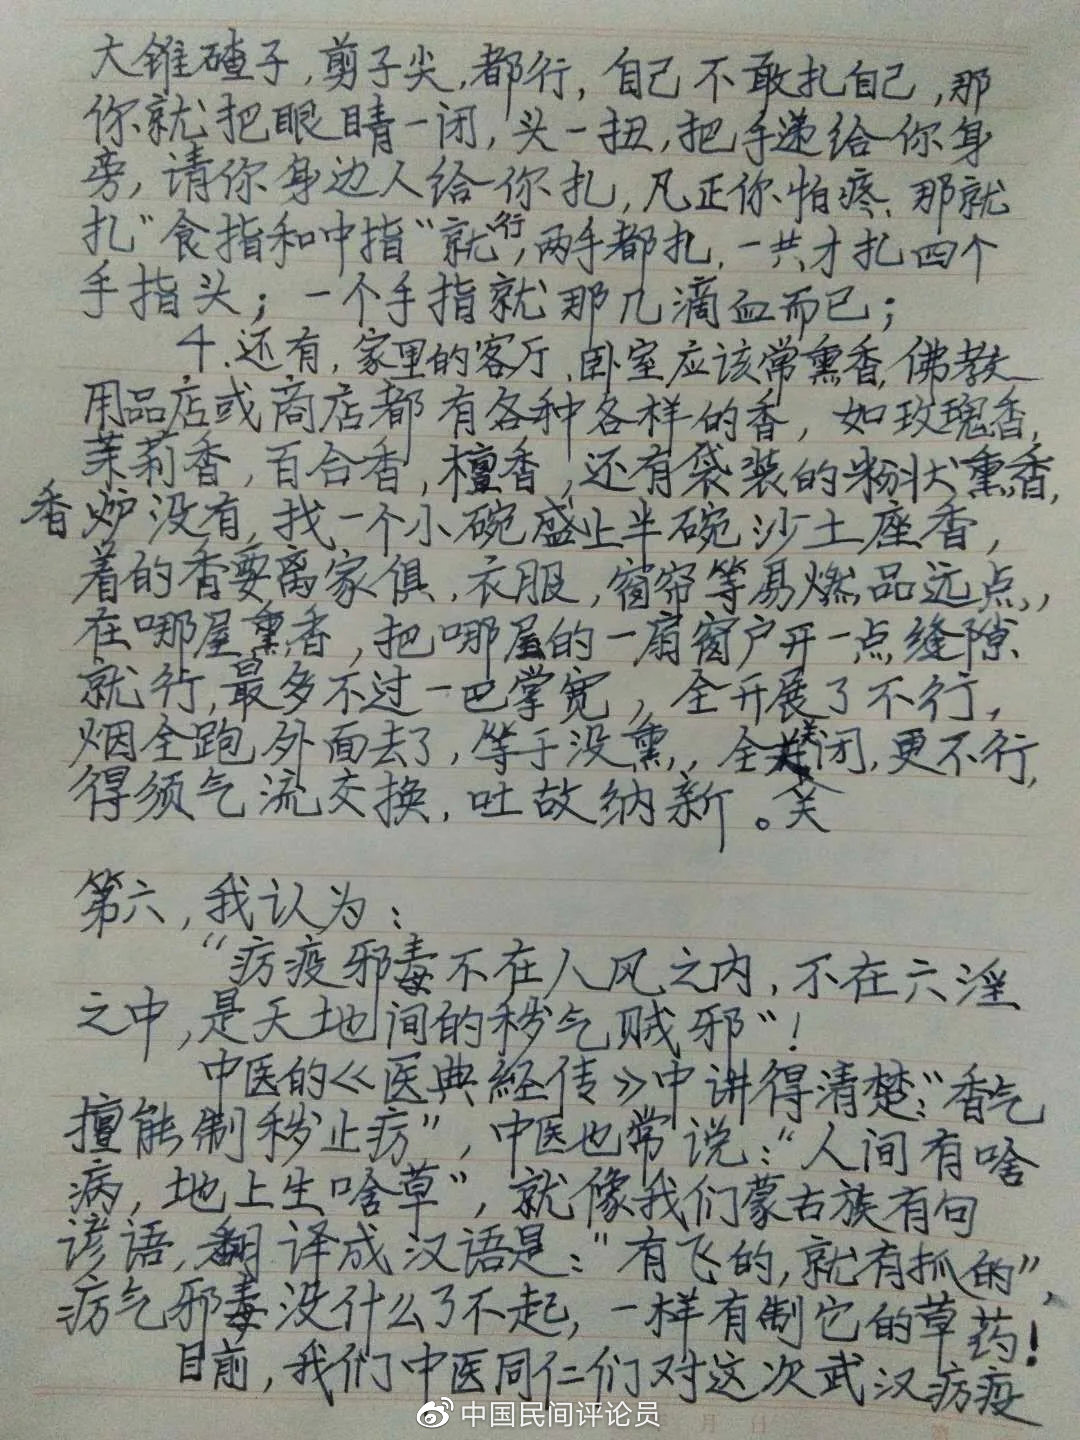 大锥碴子,剪子尖,都行,自己不敢扎自己,那
你就把眼睛一闭,头一扭,把手递给你身
旁,请你身边人给你扎,凡正你怕疼、那就
扎“食指和中指”就行,两手都扎,一共才扎四个
手指头;一个手指就那几滴血而已;
4.还有,家里的客厅、卧室应该常熏香,佛教
用品店或商店都有各种各样的香,如玫瑰香,
茉莉香,百合香,檀香,还有袋装的粉状熏香,
香炉没有,找一个小碗盛上半碗沙土座香,
着的香要离家俱,衣服,窗帘等易燃品远点,,
在哪屋熏香,把哪屋的一扇窗户开一点缝隙
就行,最多不过一巴掌宽,全开展了不行,
烟全跑外面去了,等于没熏,,全关闭,更不行,
得须气流交换,吐故纳新。
第六,我认为:
“疠疫邪毒不在八风之内,不在六淫
之中,是天地间的秽气贼邪”!
中医的《医典經传》中讲得清楚:“香气
擅能制秽止疠”,中医也常说:“人间有啥
病,地上生啥草”,就像我们蒙古族有句
谚语,翻译成汉语是:“有飞的,就有抓的”,
疠气邪毒没什么了不起,一样有制它的草药!
目前,我们中医同仁们对这次武汉疠疫
中国民间评论员